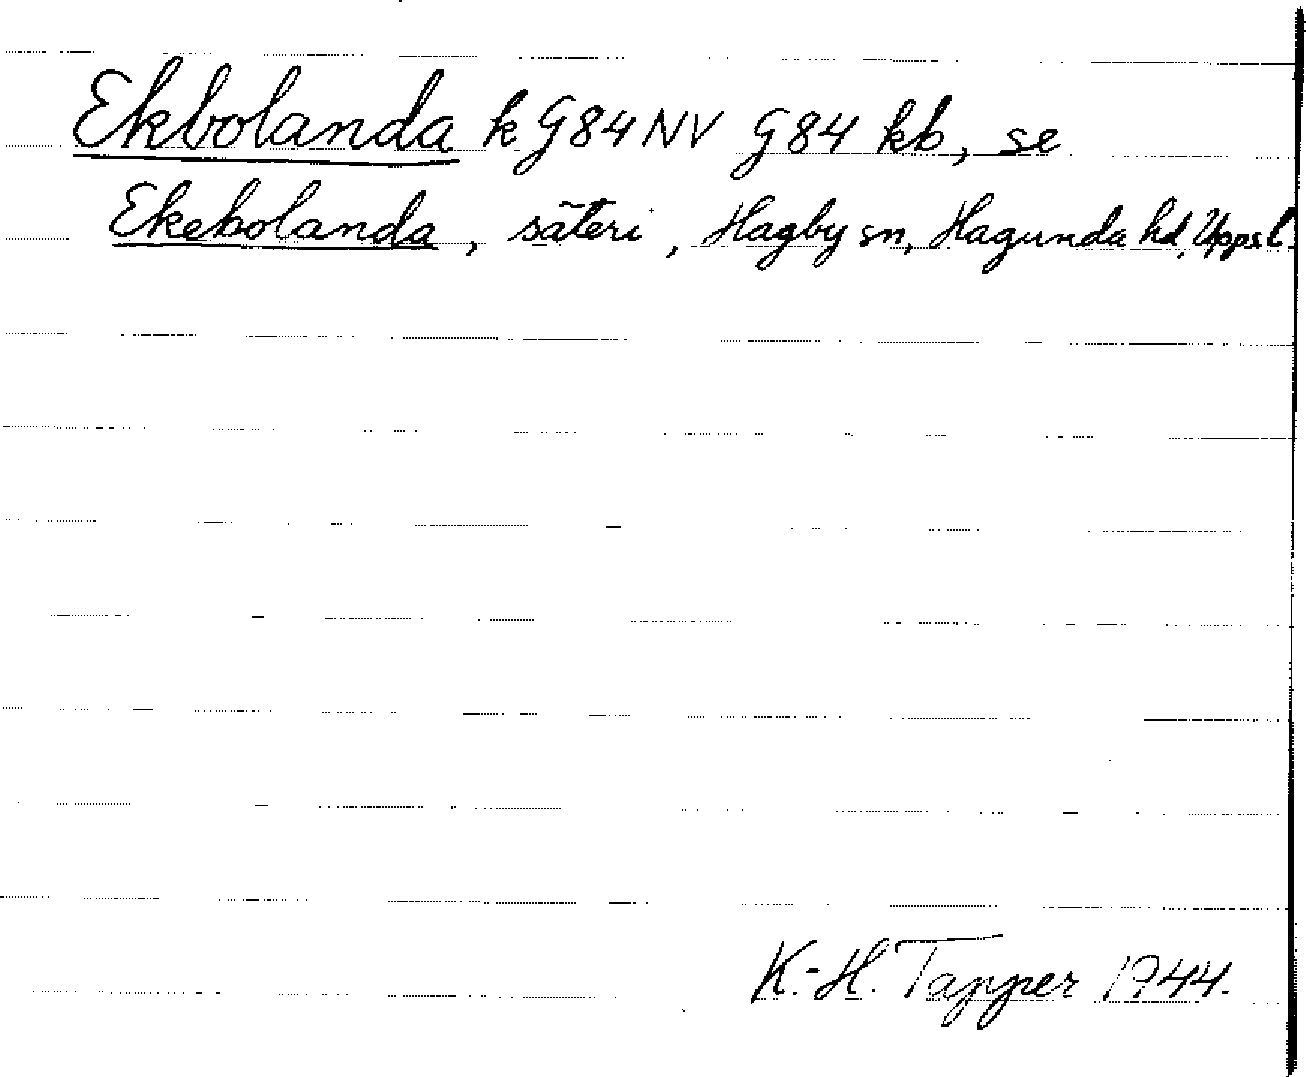 Ekbolanda k G84NV G84 kb, se
Ekebolanda, säteri, Hagby sn, Hagunda hd, Upps l.
K.-H. Tapper 1944.